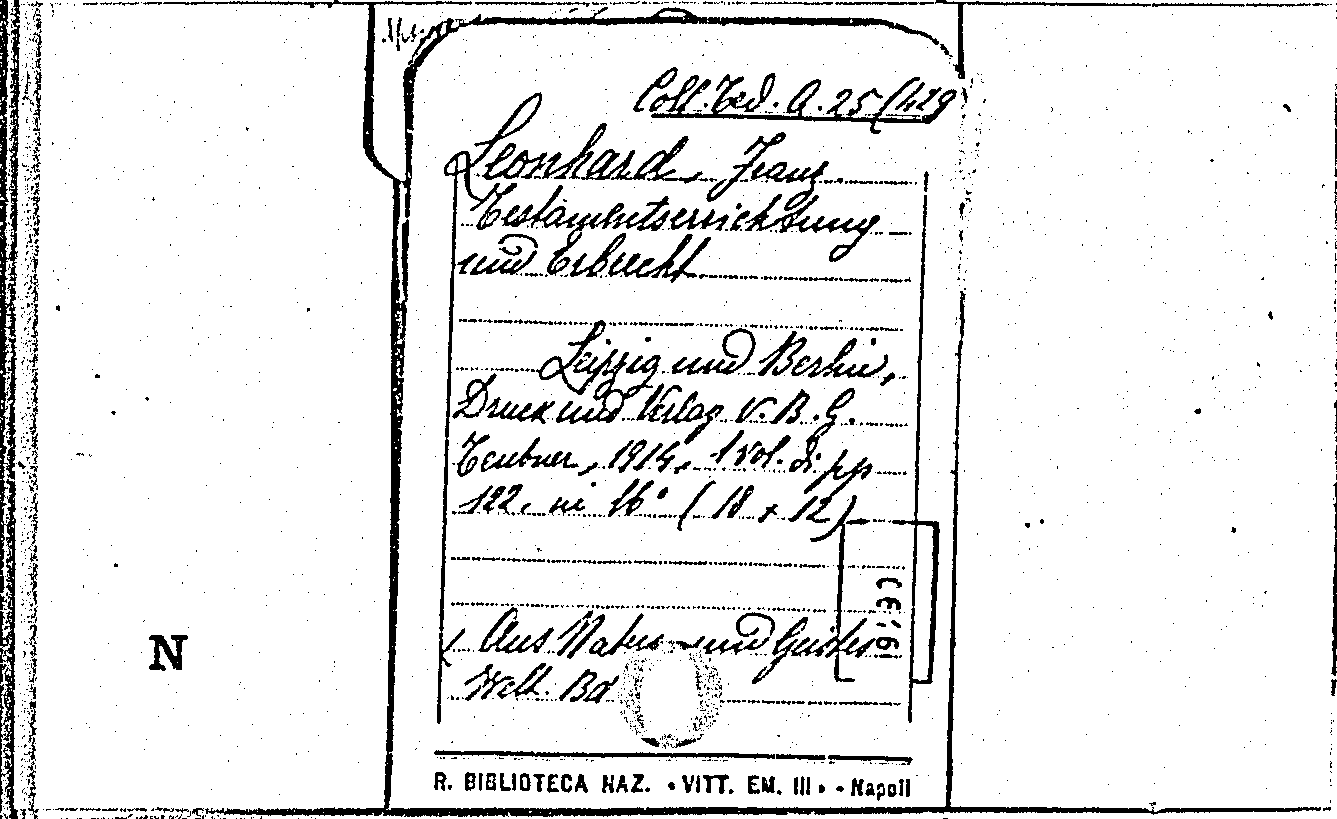 Coll. Ted. A. 25 (429
Leonhard, Franz.
Testamentserrichtung
und Erbrecht
Leipzig und Berlin,
Druck und Verlag v. B. G.
Teubner, 1914, 1 vol. di pp
122. in 16° (18 x 12)
( Aus Natur - und Geistes
Welt. Bd
N
R. BIBLIOTECA NAZ. • VITT. EM. III • - Napoli